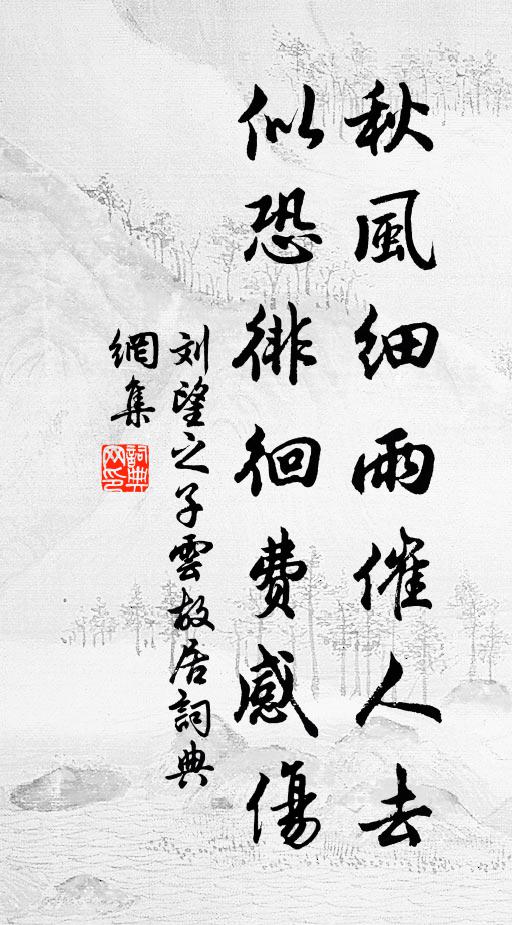 秋風細雨催人去
似恐徘徊費感傷
刘望之子雲故居詞典
網集
詞典
网印